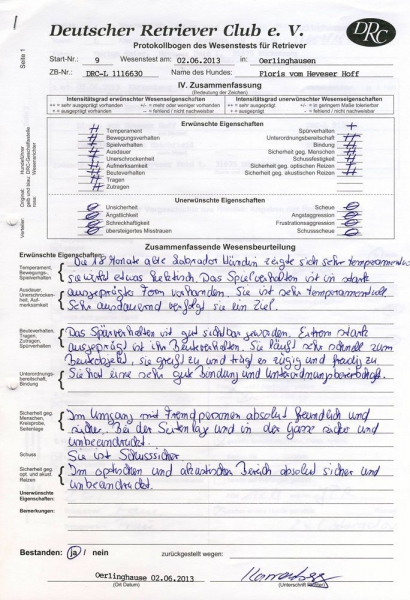 Deutscher Retriever Club e. V.
DRC
Protokollbogen des Wesenstests für Retriever
Seite 1
Start-Nr.: 9 Wesenstest am: 02.06.2013 in: Oerlinghausen
ZB-Nr.: DRC-L 1116630 Name des Hundes: Floris vom Heveser Hoff
IV. Zusammenfassung
(Bedeutung der Zeichen)
Intensitätsgrad erwünschter Wesenseigenschaften Intensitätsgrad unerwünschter Wesenseigenschaften
++ = sehr ausgeprägt vorhanden +/- = mehr oder weniger vorhanden ++ = sehr ausgeprägt vorhanden +/- = in geringem Maße tolerierbar
+ = ausgeprägt vorhanden – = fehlend / nicht nachweisbar + = ausgeprägt vorhanden – = fehlend / nicht nachweisbar
Erwünschte Eigenschaften
++ Temperament Spürverhalten +
++ Bewegungsverhalten Unterordnungsbereitschaft ++
++ Spielverhalten Bindung ++
++ Ausdauer Sicherheit geg. Menschen ++
++ Unerschrockenheit Schussfestigkeit ++
++ Aufmerksamkeit Sicherheit geg. optischen Reizen ++
++ Beuteverhalten Sicherheit geg. akustischen Reizen ++
++ Tragen
++ Zutragen
Unerwünschte Eigenschaften
Unsicherheit Scheue
Ängstlichkeit Angstaggression
Schreckhaftigkeit Frustrationsaggression
übersteigertes Misstrauen Schussscheue
Zusammenfassende Wesensbeurteilung
Erwünschte Eigenschaften:
Temperament, Bewegungs-, Spielverhalten
Die 18 Monate alte Labrador Hündin zeigte sich sehr temperamentvoll
sie wirkt etwas hektisch. Das Spielverhalten ist in stark
Ausdauer, Unerschrockenheit, Aufmerksamkeit
ausgeprägter Form vorhanden. Sie ist sehr temperamentvoll.
Sehr ausdauernd verfolgt sie ein Ziel.
Beuteverhalten, Tragen, Zutragen, Spürverhalten
Das Spürverhalten ist gut sichtbar geworden. Extrem stark
ausgeprägt ist ihr Beuteverhalten. Sie läuft sehr schnell zum
Beuteobjekt, sie greift zu und trägt es zügig und freudig zu
Unterordnungsbereitschaft, Bindung
Sie hat eine sehr gute Bindung und Unterordnungsbereitschaft.
Sicherheit geg. Menschen, Kreisprobe, Seitenlage
Im Umgang mit Fremdpersonen absolut freundlich und
sicher. Bei der Seitenlage und in der Gasse sicher und
unbeeindruckt.
Schuss
Sie ist Schusssicher.
Sicherheit geg. opt. und akust. Reizen
Im optischen und akustischen Bereich absolut sicher und
unbeeindruckt.
Unerwünschte Eigenschaften:
Bemerkungen:
Bestanden: ja / nein zurückgestellt wegen:
Oerlinghause 02.06.2013
(Ort Datum)